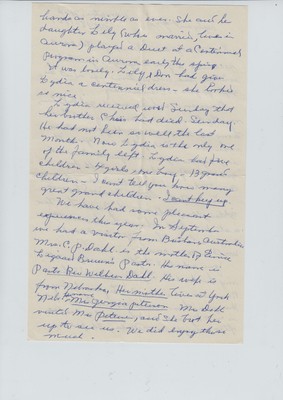 hands as nimble as ever. She and he
daughter Lily (who marrie, lives in
Aurora) played a Duet at a Centennial
Program in Aurora early this spring
It was lovely. Lily & Don had given
Lydia a centennial dress - she looked
so nice.
Lydia received word Sunday that
her brother Chris had died - Sunday.
He had not been so well the last
month - Now Lydia is the only one
of the family left. Lydia had five
children - 4 girls & one boy - 13 grand
children - I can't tell you how many
great grand children - I can't keep up.
We have had some pleasant
experiences this year. In September
we had a visitor from Brisbane, Australia
Mrs. C. P. Dahl is the mother of
Pastor. His name is
Pastor Rev William Dahl. His wife is
from Nebraska. Her mother lives at York
Nebr. name Mrs Georgia peterson Mrs Dahl
visited Mrs Peterson, and she brot her
up to see us. We did enjoy them
much.